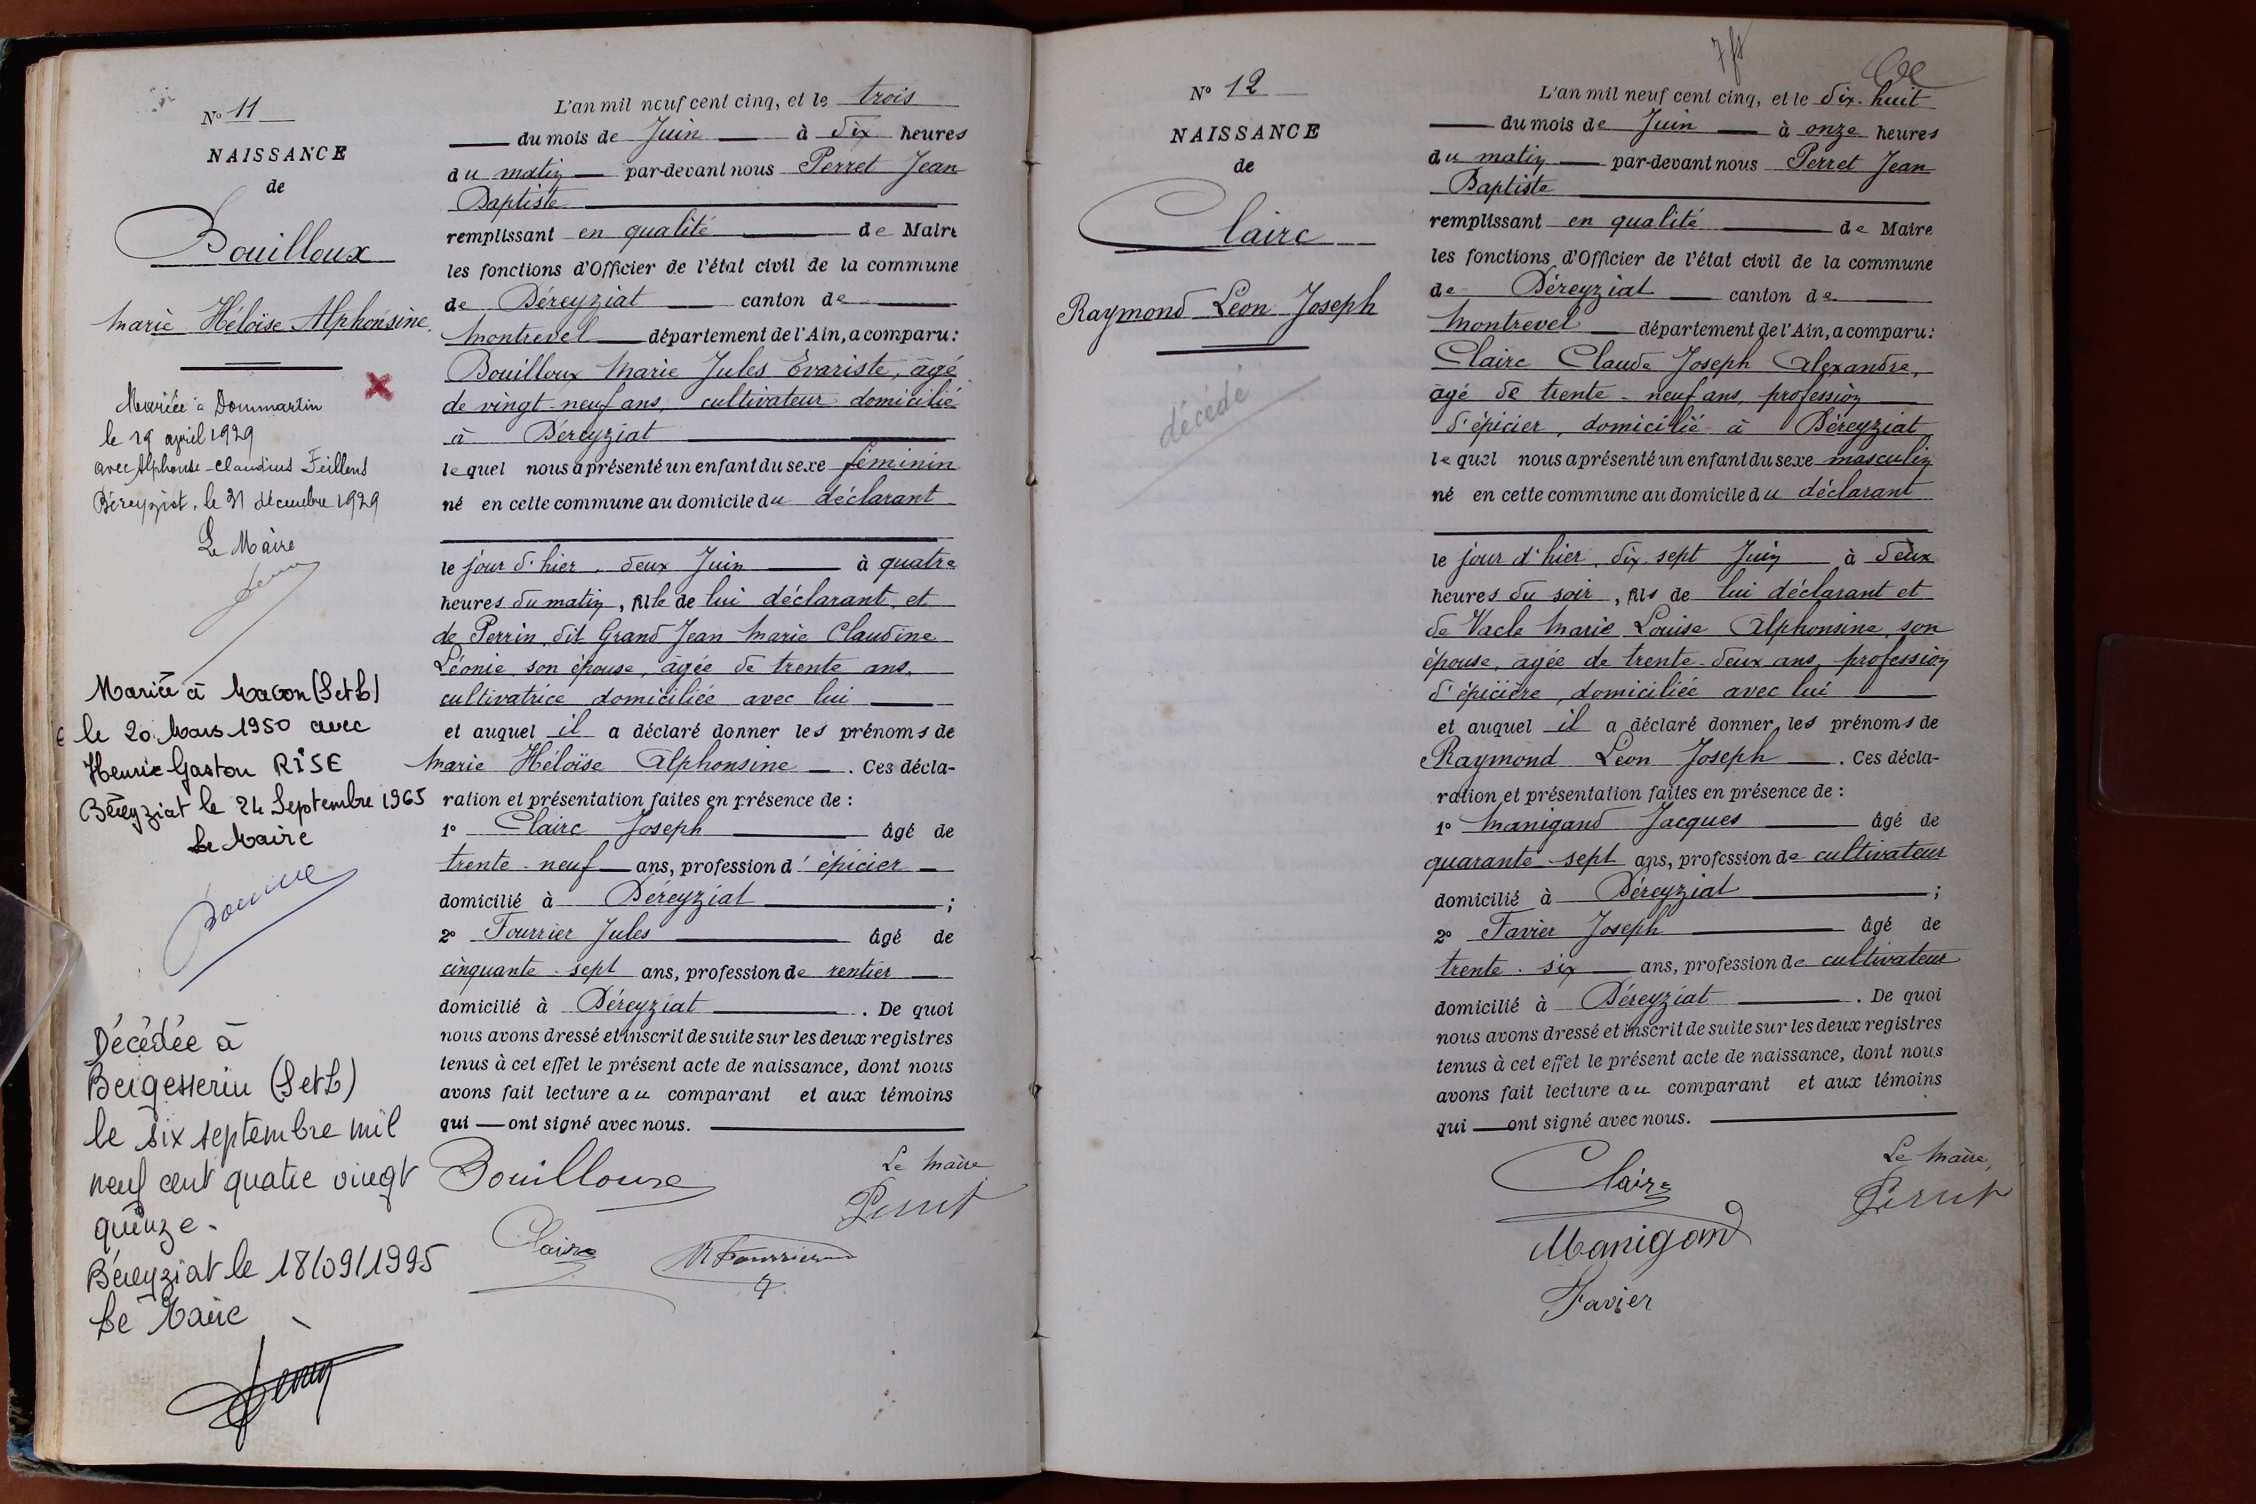 N° 11
NAISSANCE
de
Bouilloux
Marie Héloïse Alphonsine
Mariée à Dommartin
le 19 april 1929
avec Alphonse-Claudius Feillens
Béreyziat, le 31 décembre 1929
Le Maire
Mariée à Macon (S et L)
le 20 Mars 1950 avec
Henrie Gaston RISE
Béreyziat le 24 Septembre 1965
Le Maire
Décédée à
Bergesserin (S et L)
le six septembre mil
neuf cent quatre vingt
quinze.
Béreyziat le 18/09/1995
Le Maire
L'an mil neuf cent cinq, et le trois
du mois de Juin à dix heures
du matin par-devant nous Perret Jean
Baptiste
remplissant en qualité de Maire
les fonctions d'Officier de l'état civil de la commune
de Béreyziat canton de
Montrevel département de l'Ain, a comparu :
Bouilloux Marie Jules Évariste, âgé
de vingt-neuf ans, cultivateur domicilié
à Béreyziat
lequel nous a présenté un enfant du sexe féminin
né en cette commune au domicile du déclarant
le jour d'hier, deux Juin à quatre
heures du matin, fille de lui déclarant, et
de Perrin dit Grand Jean Marie Claudine
Léonie son épouse, âgée de trente ans,
cultivatrice domiciliée avec lui
et auquel il a déclaré donner les prénoms de
Marie Héloïse Alphonsine. Ces décla-
ration et présentation faites en présence de :
1° Clairc Joseph âgé de
trente-neuf ans, profession d'épicier
domicilié à Béreyziat ;
2° Fourrier Jules âgé de
cinquante-sept ans, profession de rentier
domicilié à Béreyziat. De quoi
nous avons dressé et inscrit de suite sur les deux registres
tenus à cet effet le présent acte de naissance, dont nous
avons fait lecture au comparant et aux témoins
qui ont signé avec nous.
Bouilloux
Le Maire
Perret
Clairc
Fourrier
N° 12
NAISSANCE
de
Clairc
Raymond Léon Joseph
décédé
L'an mil neuf cent cinq, et le dix-huit
du mois de Juin à onze heures
du matin par-devant nous Perret Jean
Baptiste
remplissant en qualité de Maire
les fonctions d'Officier de l'état civil de la commune
de Béreyziat canton de
Montrevel département de l'Ain, a comparu :
Clairc Claude Joseph Alexandre,
âgé de trente-neuf ans, profession
d'épicier, domicilié à Béreyziat
lequel nous a présenté un enfant du sexe masculin
né en cette commune au domicile du déclarant
le jour d'hier, dix-sept Juin à deux
heures du soir, fils de lui déclarant et
de Vacle Marie Louise Alphonsine, son
épouse, âgée de trente-deux ans, profession
d'épicière, domiciliée avec lui
et auquel il a déclaré donner les prénoms de
Raymond Léon Joseph. Ces décla-
ration et présentation faites en présence de :
1° Manigand Jacques âgé de
quarante-sept ans, profession de cultivateur
domicilié à Béreyziat ;
2° Favier Joseph âgé de
trente-six ans, profession de cultivateur
domicilié à Béreyziat. De quoi
nous avons dressé et inscrit de suite sur les deux registres
tenus à cet effet le présent acte de naissance, dont nous
avons fait lecture au comparant et aux témoins
qui ont signé avec nous.
Clairc
Le Maire,
Perret
Manigand
Favier